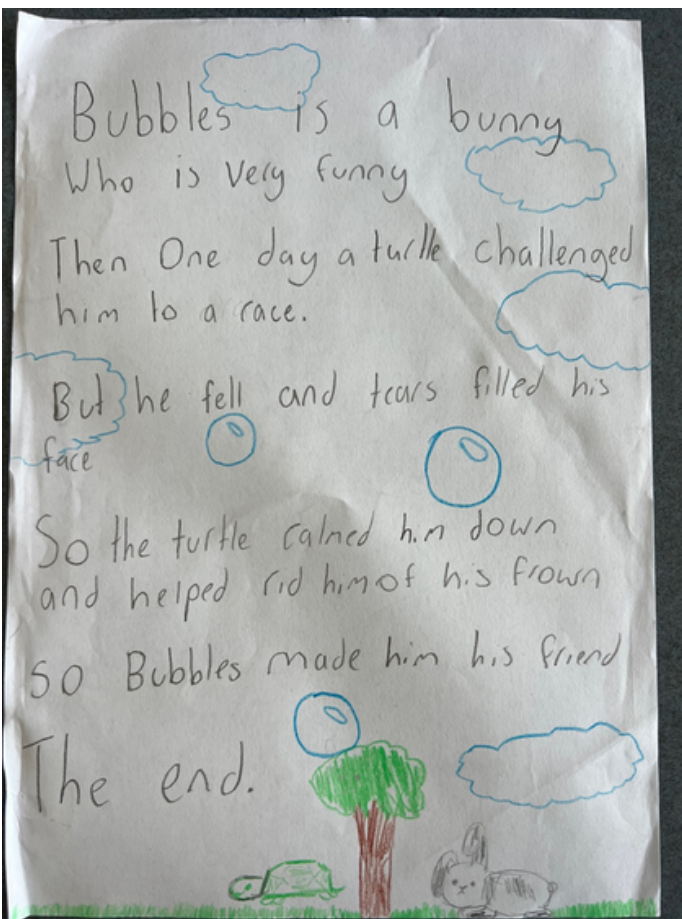 Bubbles is a bunny
Who is very funny
Then One day a turtle challenged
him to a race.
But he fell and tears filled his
face
So the turtle calmed him down
and helped rid him of his frown
So Bubbles made him his friend
The end.